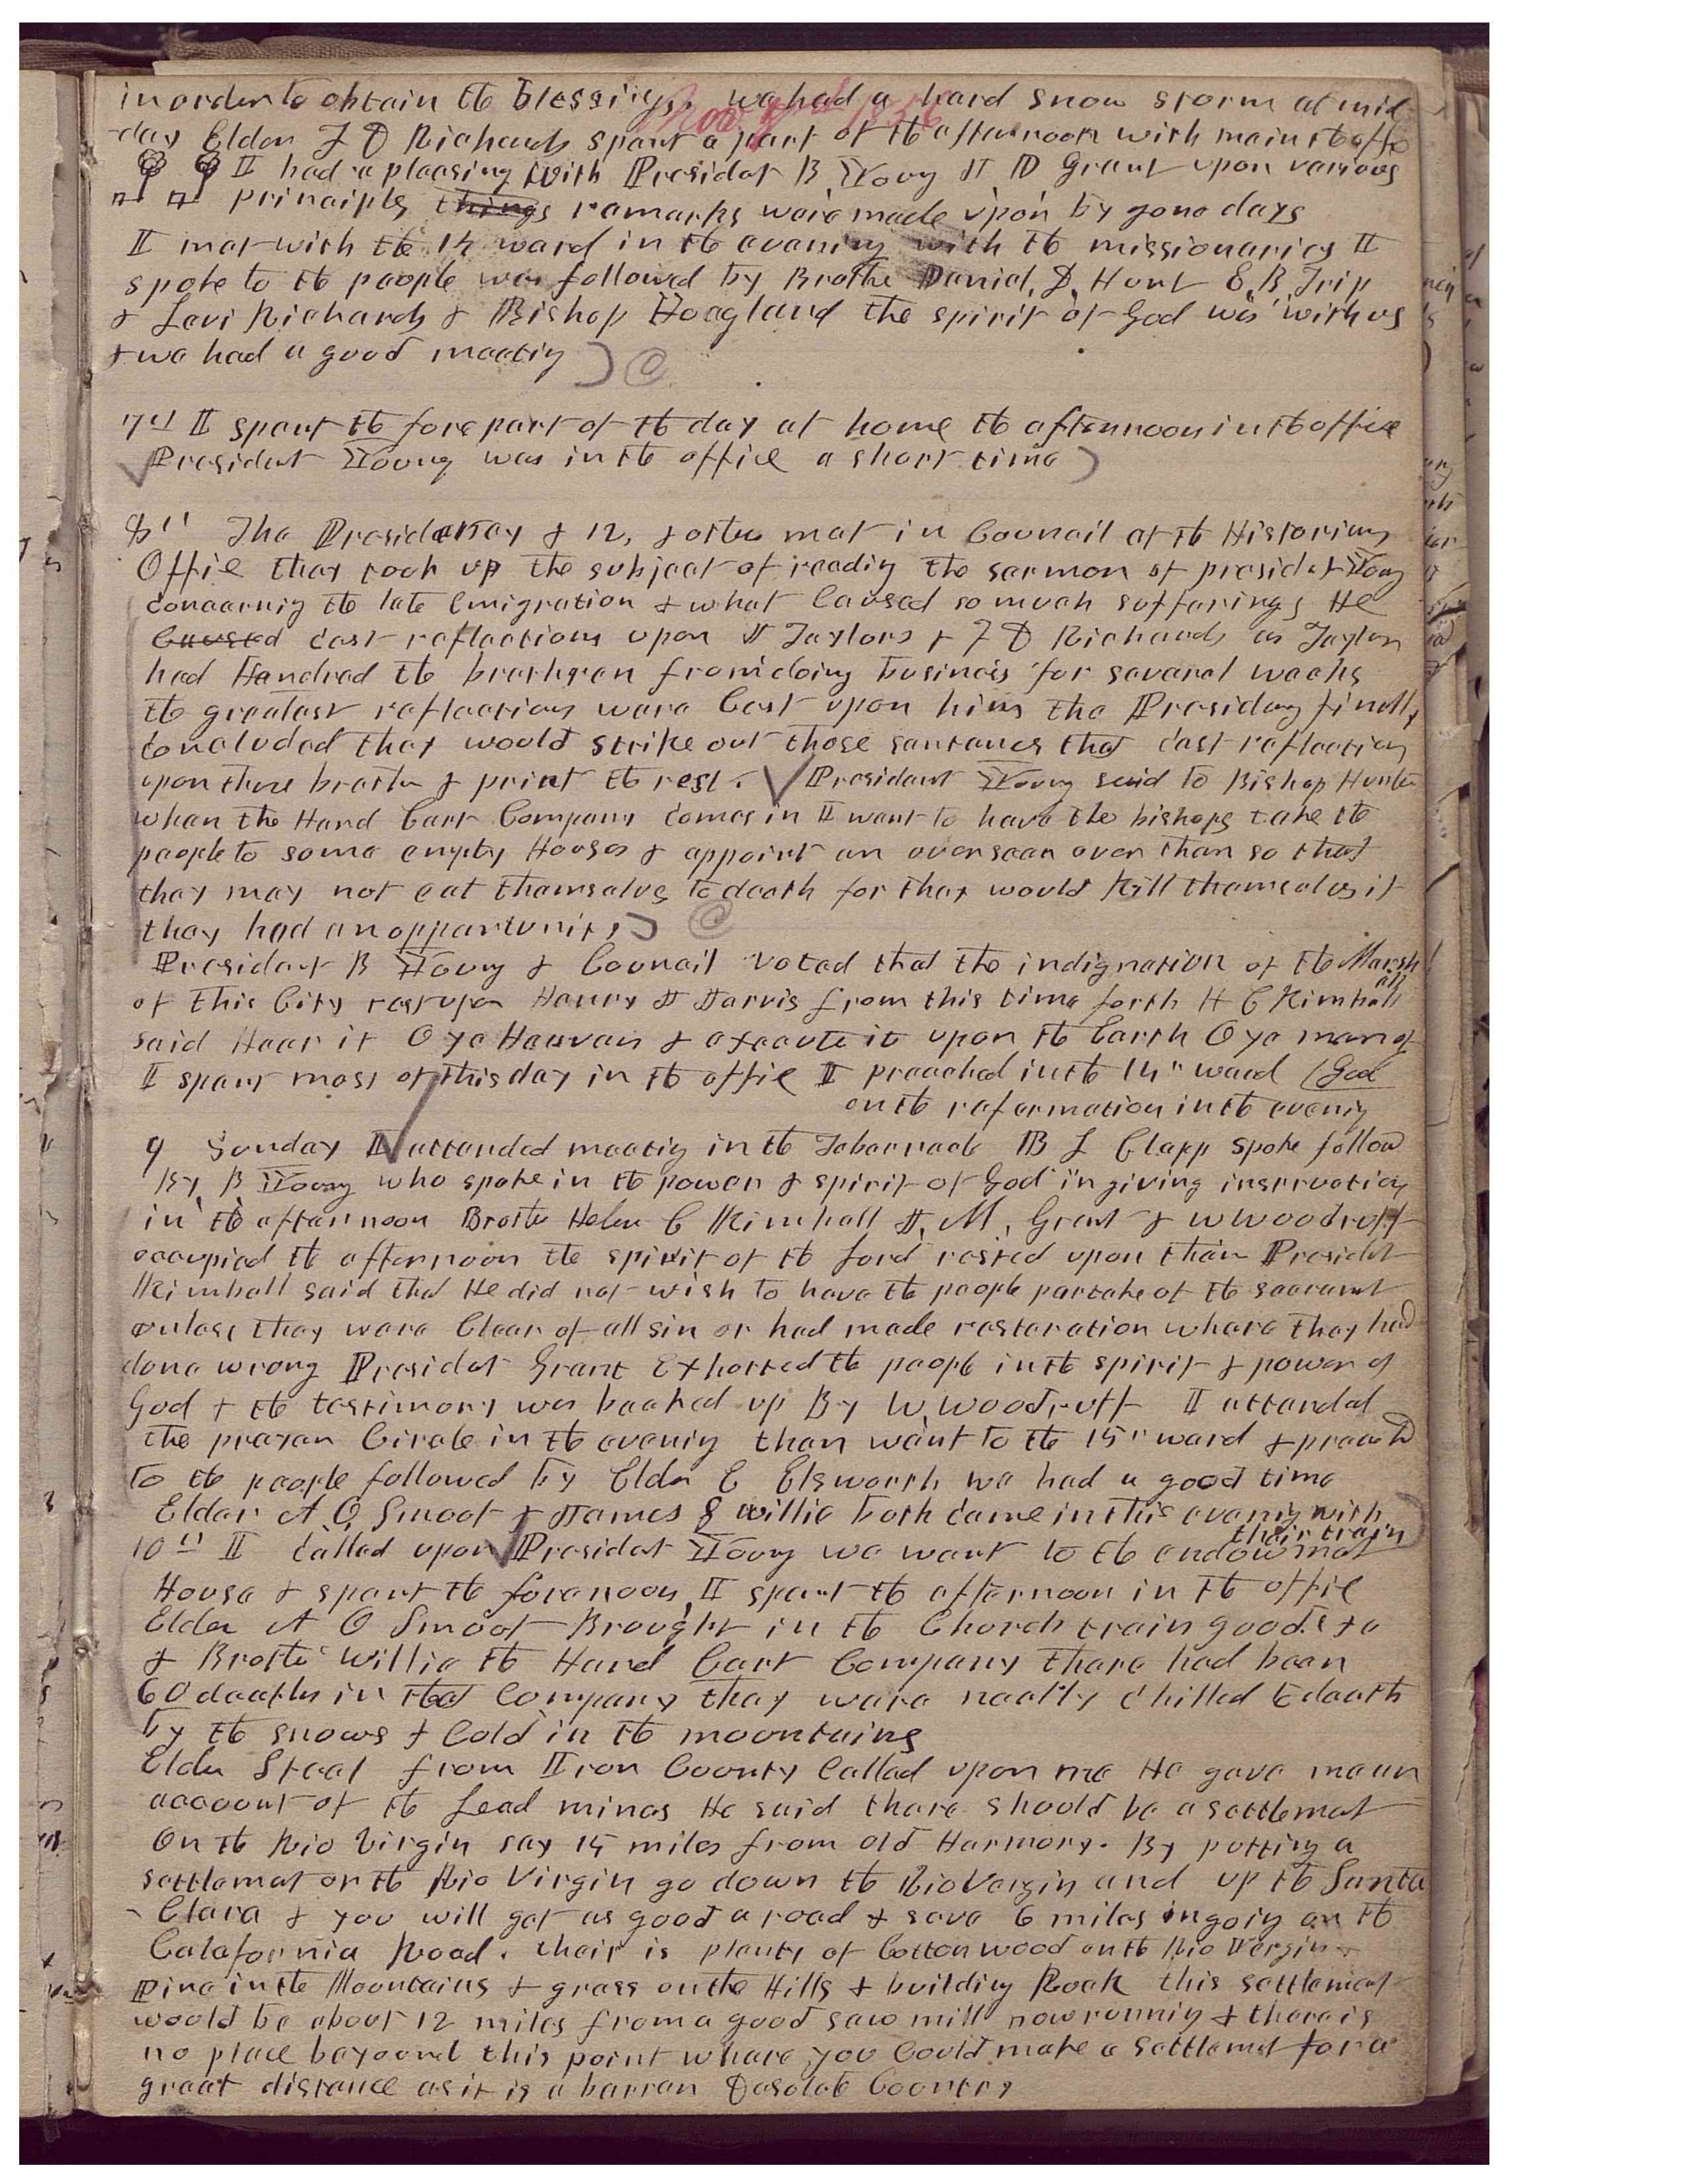 in order to obtain the blessings, we had a hard snow storm at mid
Nov 1856
day Elder F D Richards spent a part of the afternoon with me in the office
I had a pleasing with Presidet B Young J M Grant upon various
principls things remarks were made upon by gone days
I met with the 14 ward in the evening with the missionaries I
spoke to the people was followed by Brother Daniel. D. Hunt E. B. Trip
& Levi Richards & Bishop Hoagland the spirit of God was with us
& we had a good meetig
7th I spent the forepart of the day at home the afternoon in the office
President Young was in the office a short time
8th The Presidency & 12, & other met in Council at the Historians
Offie they took up the subject of readig the sermon of presidet Young
concernig the late Emigration & what Caused so much sufferings He
Caused cast reflections upon J Taylors & F D Richards as Taylor
had Handred the brethren from doing business for several weeks
the greatest reflections were Cast upon him the Presidency finally
concluded they would strike out those sentances that cast reflection
upon those brethen & print the rest. President Young said to Bishop Hunter
when the Hand Cart Company comes in I want to have the bishops take the
people to some empty Houses & appoint an overseer over them so that
they may not eat themselvs to death for they would kill themselves if
they had an oppertunity
President B Young & Council voted that the indignation of the Marsh
all
of this City rest upon Henry J Jarvis from this time forth H C Kimball
said Hear it O ye Heavens & execute it upon the Earth O ye men of
I spent most of this day in the offie I preached in the 14" ward (God
on the reformation in the evenig
9 Sunday I attended meetig in the Tabernacle B L Clapp spoke follow
By B Young who spoke in the power & spirit of God in giving instruction
in the afternoon Brother Heber C Kimball J. M. Grant & W Woodruff
occupied the afternoon the spirit of the Lord rested upon them Presidet
Kimball said that He did not wish to have the people partake of the sacrament
unless they were Clear of all sin or had made restoration where they had
done wrong Presidet Grant Exhorted the people in the spirit & power of
God & the testimony was backed up By W. Woodruff I attended
the prayer Circle in the evenig then went to the 15" ward & preachd
to the people followed by Elder E Elsworth we had a good time
Elder A O Smoot & James G Willie both came in this evenig with
their train
10th I called upon President Young we went to the endowmet
House & spent the forenoon, I spent the afternoon in the offie
Elder A O Smoot Brought in the Church train goods &c
& Brother Willie the Hand Cart Company there had been
60 deaths in that Company they were neally chilled to death
by the snows & Cold in the mountains
Elder Steel from Iron County Called upon me He gave me an
account of the Lead mines He said there should be a settlemet
On the Rio Virgin say 15 miles from old Harmony. By putting a
settlemet on the Rio Virgin go down the Rio Vergin and up the Santa
Clara & you will get as good a road & save 6 miles in goig on the
Calafornia Road. their is plenty of Cottonwood on the Rio Vergin &
Pine in the Mountains & grass on the Hills & buildiny Rock this settlement
would be about 12 miles from a good saw mill now runnig & there is
no place beyound this point where you Could make a settlemet for a
great distance as it is a barren Desolate Country